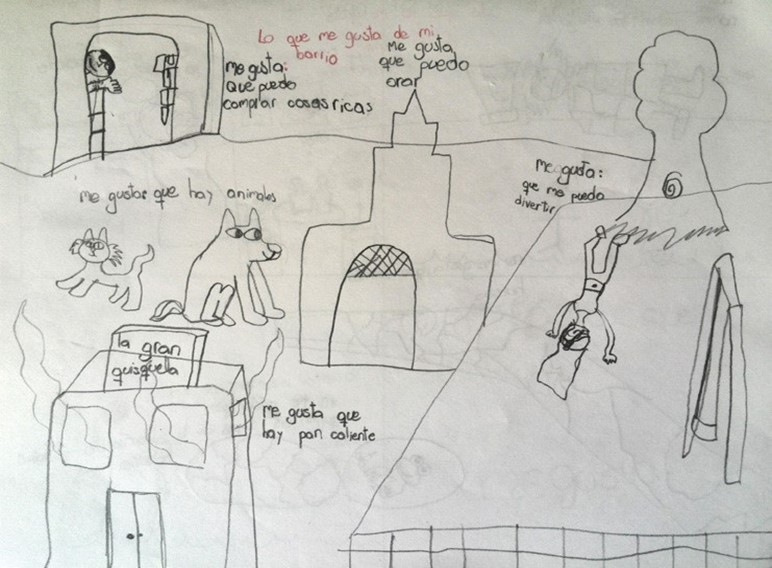 Lo que me gusta de mi
barrio
me gusta:
que puedo
comprar cosas ricas
Me gusta
que puedo
orar
me gusta:
que me puedo
divertir
me gustas que hay animales
la gran
quisquella
me gusta que
hay pan caliente